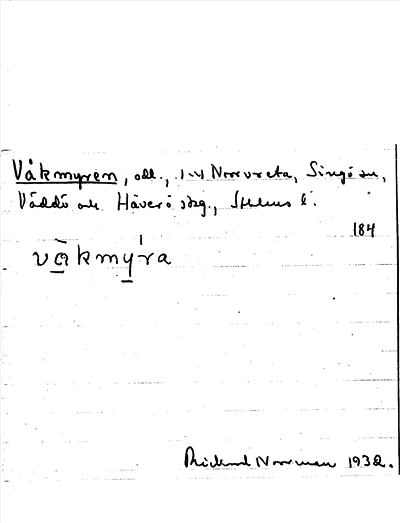 Våkmyren, odl., 1-4 Norrvreta, Singö sn,
Väddö och Häverö skg., Sthlms l.
184
vàkmy'ra
Rickard Norrman 1932.